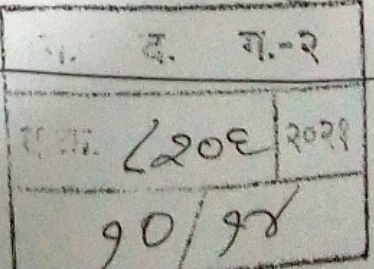 द. ग.-२
८२०६ २०२१
१०/१४